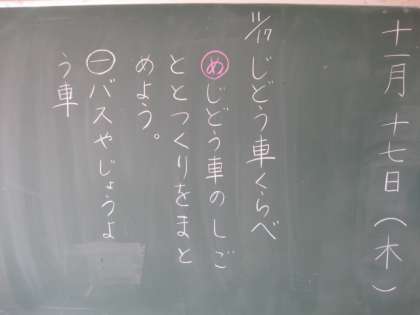 十一月十七日(木)
11/17 じどう車くらべ
めじどう車のしご
ととつくりをまと
めよう。
一バスやじょうよ
う車